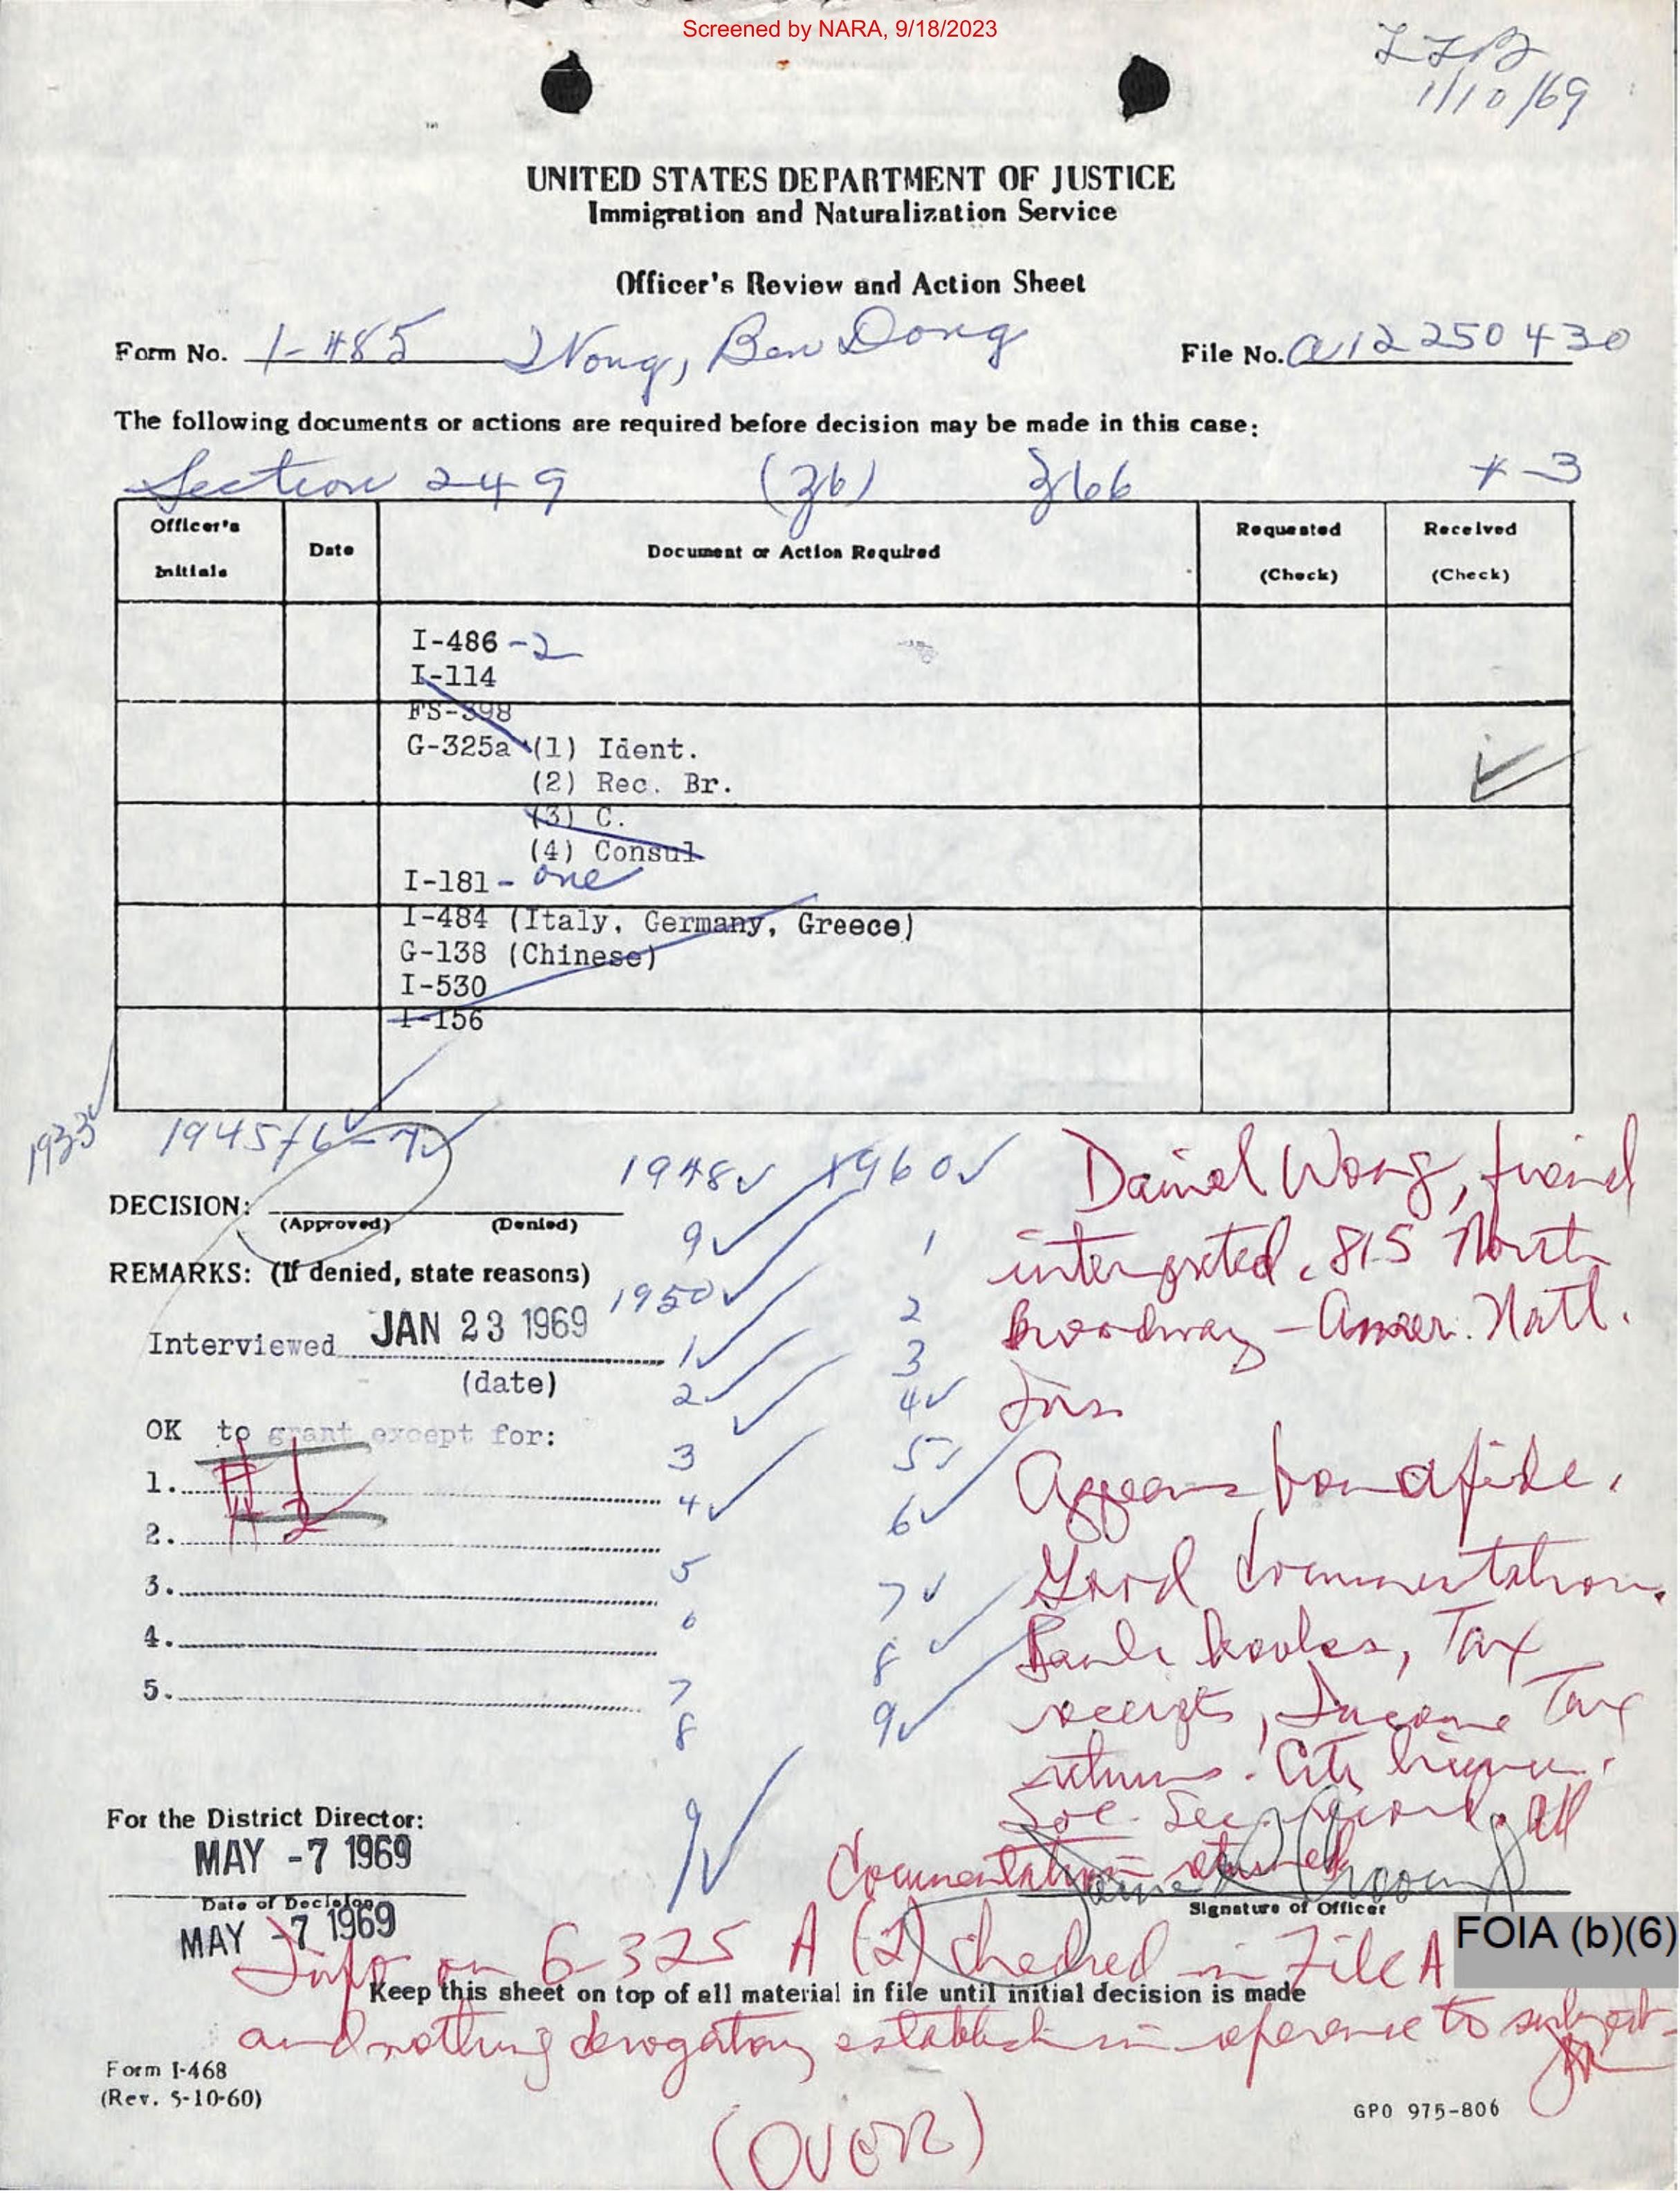 Screened by NARA, 9/18/2023
1/10/69
UNITED STATES DEPARTMENT OF JUSTICE
Immigration and Naturalization Service
Officer's Review and Action Sheet
Form No. I-485 Wong, Ben Dong File No. A12 250 430
The following documents or actions are required before decision may be made in this case:
Section 249 (36) 366 + -3
Officer's Initials Date Document or Action Required Requested (Check) Received (Check)
I-486 - 2
I-114
FS-398
G-325a (1) Ident.
(2) Rec. Br.
(3) C.
(4) Consul
I-181 - one
I-484 (Italy, Germany, Greece)
G-138 (Chinese)
I-530
I-156
1933 1945/6-7
1948 1960
DECISION:
(Approved) (Denied)
9 1
REMARKS: (If denied, state reasons)
1950 2
Interviewed JAN 23 1969
(date)
1 3
2 4
OK to grant except for:
3 5
1. #1
4 6
2. #2
5 7
3.
6 8
4.
7 9
5.
8
9
Daniel Wong, friend
interpreted. 815 North
Broadway - Amer. Natl.
Ins.
Appears bonafide.
Good documentation.
Bank books, Tax
receipts, Income Tax
returns. City license.
Soc. Sec. record. All
documentation returned
For the District Director:
MAY -7 1969
Date of Decision
MAY -7 1969
Signature of Officer
FOIA (b)(6)
Info on G-325 A (2) checked in File A
Keep this sheet on top of all material in file until initial decision is made
and nothing derogatory establish in reference to subject-
Form I-468
(Rev. 5-10-60)
GPO 975-806
(OVER)